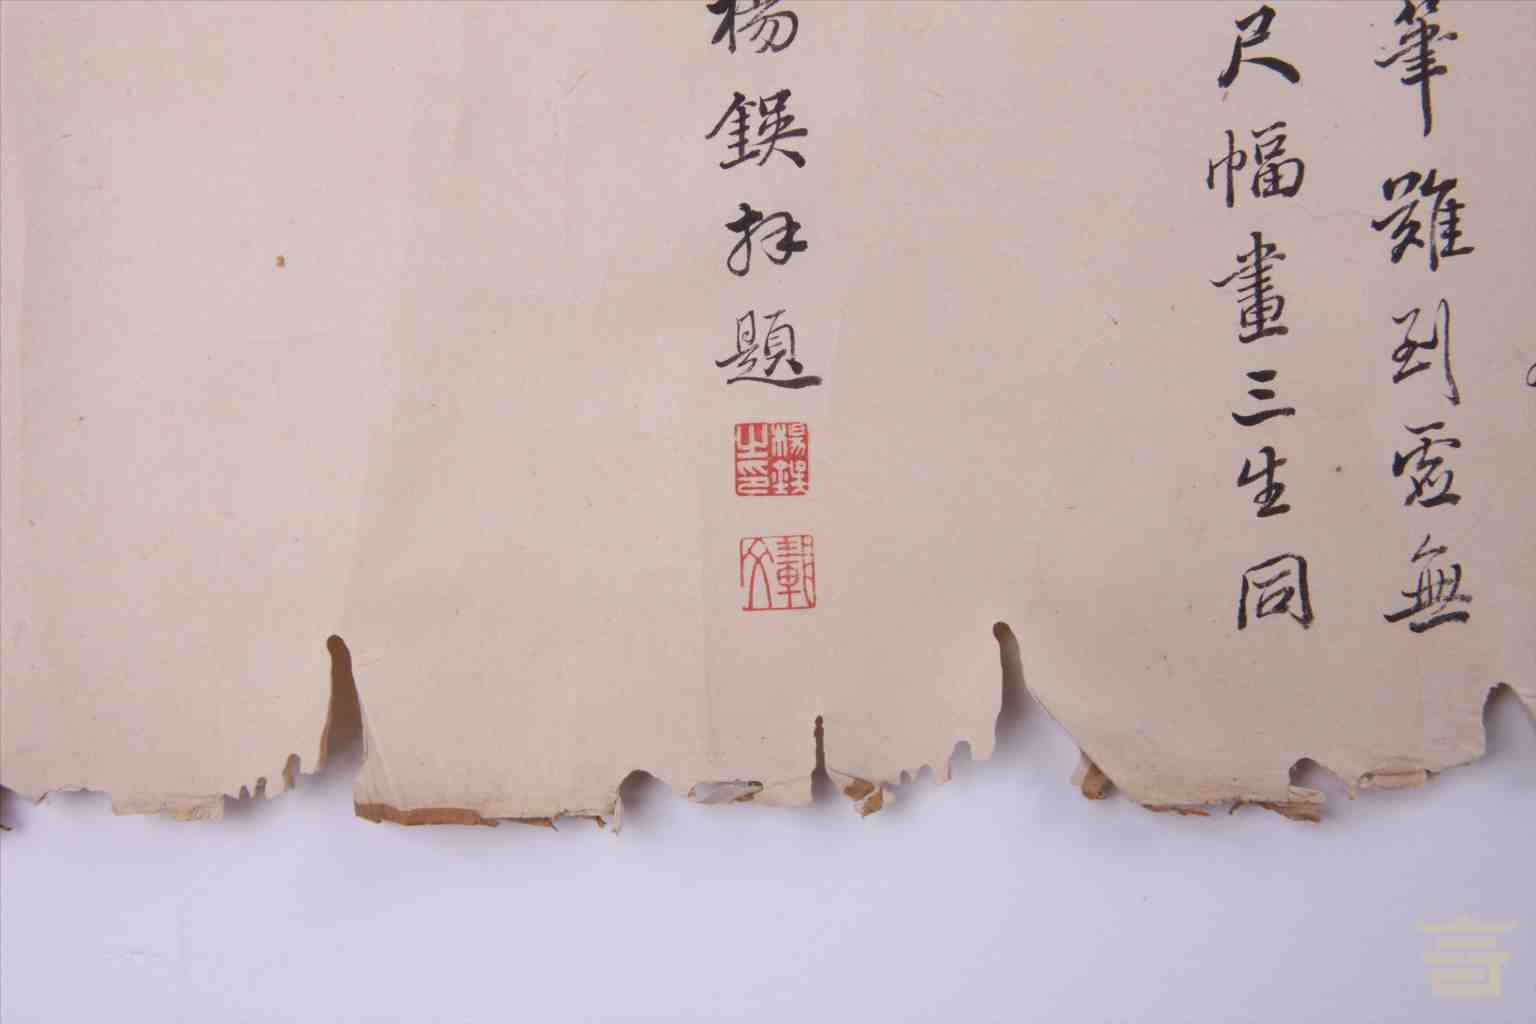 筆難到虛無
尺幅畫三生同
楊鍈拜題
楊鍈之印